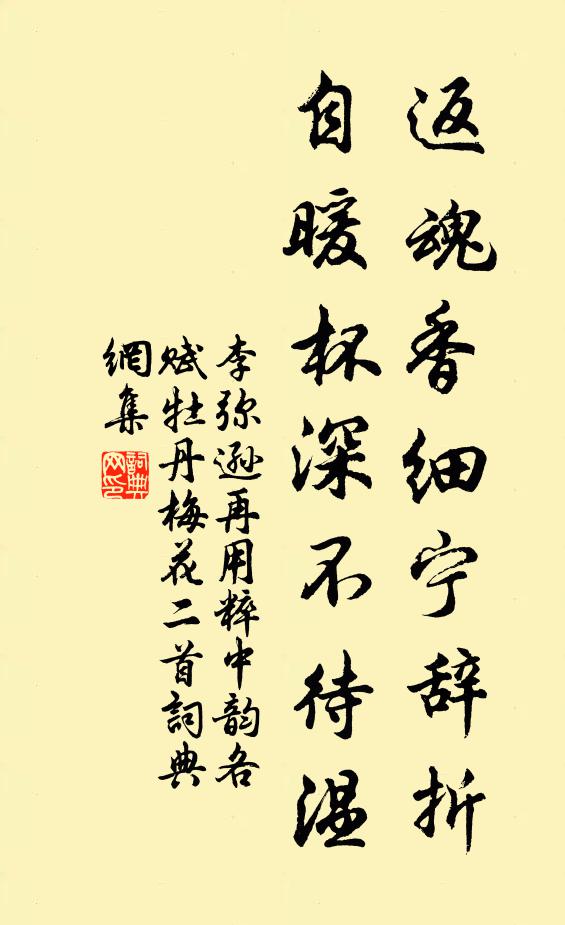 返魂香细宁辞折
自暖杯深不待温
李弥逊再用粹中韵各
赋牡丹梅花二首詞典
網集
詞典網印